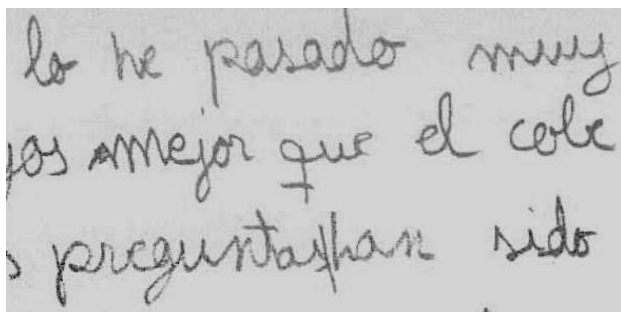 lo he pasado muy
gos mejor que el cole
s preguntas han sido